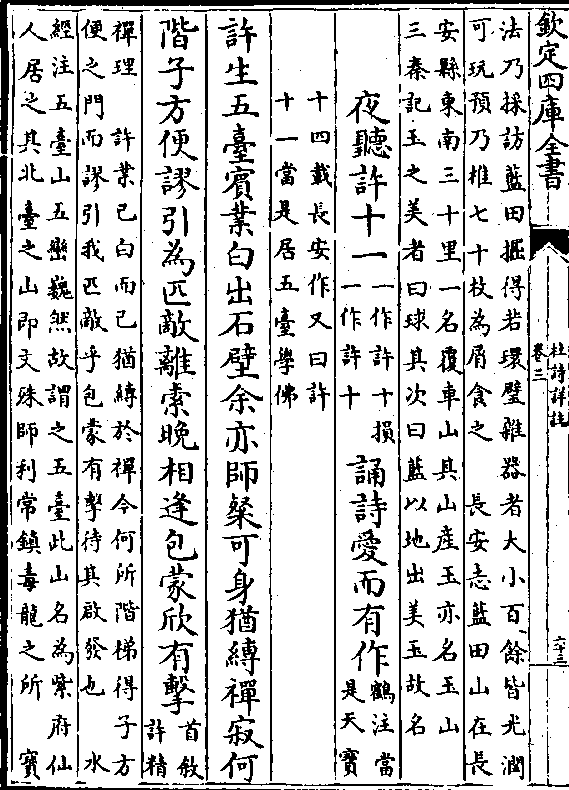 欽定四庫全書
杜詩詳註
卷三
六十三
法乃採訪藍田掘得若環璧雜器者大小百餘皆光潤
可玩預乃椎七十枚為屑食之　長安志藍田山在長
安縣東南三十里一名覆車山其山産玉亦名玉山
三秦記玉之美者曰球其次曰藍以地出美玉故名
夜聽許十一一作許十損一作許十誦詩愛而有作鶴注當是天寶
十四載長安作又曰許
十一當是居五臺學佛
許生五臺賓業白出石壁余亦師粲可身猶縛禪寂何
階子方便謬引為匹敵離索晚相逢包蒙欣有擊首敘許精
禪理　許業已白而已猶縛於禪今何所階梯得子方
便之門而謬引我匹敵乎包蒙有擊待其啟發也　水
經注五臺山五巒巍然故謂之五臺此山名為紫府仙
人居之其北臺之山即文殊師利常鎮毒龍之所　寶